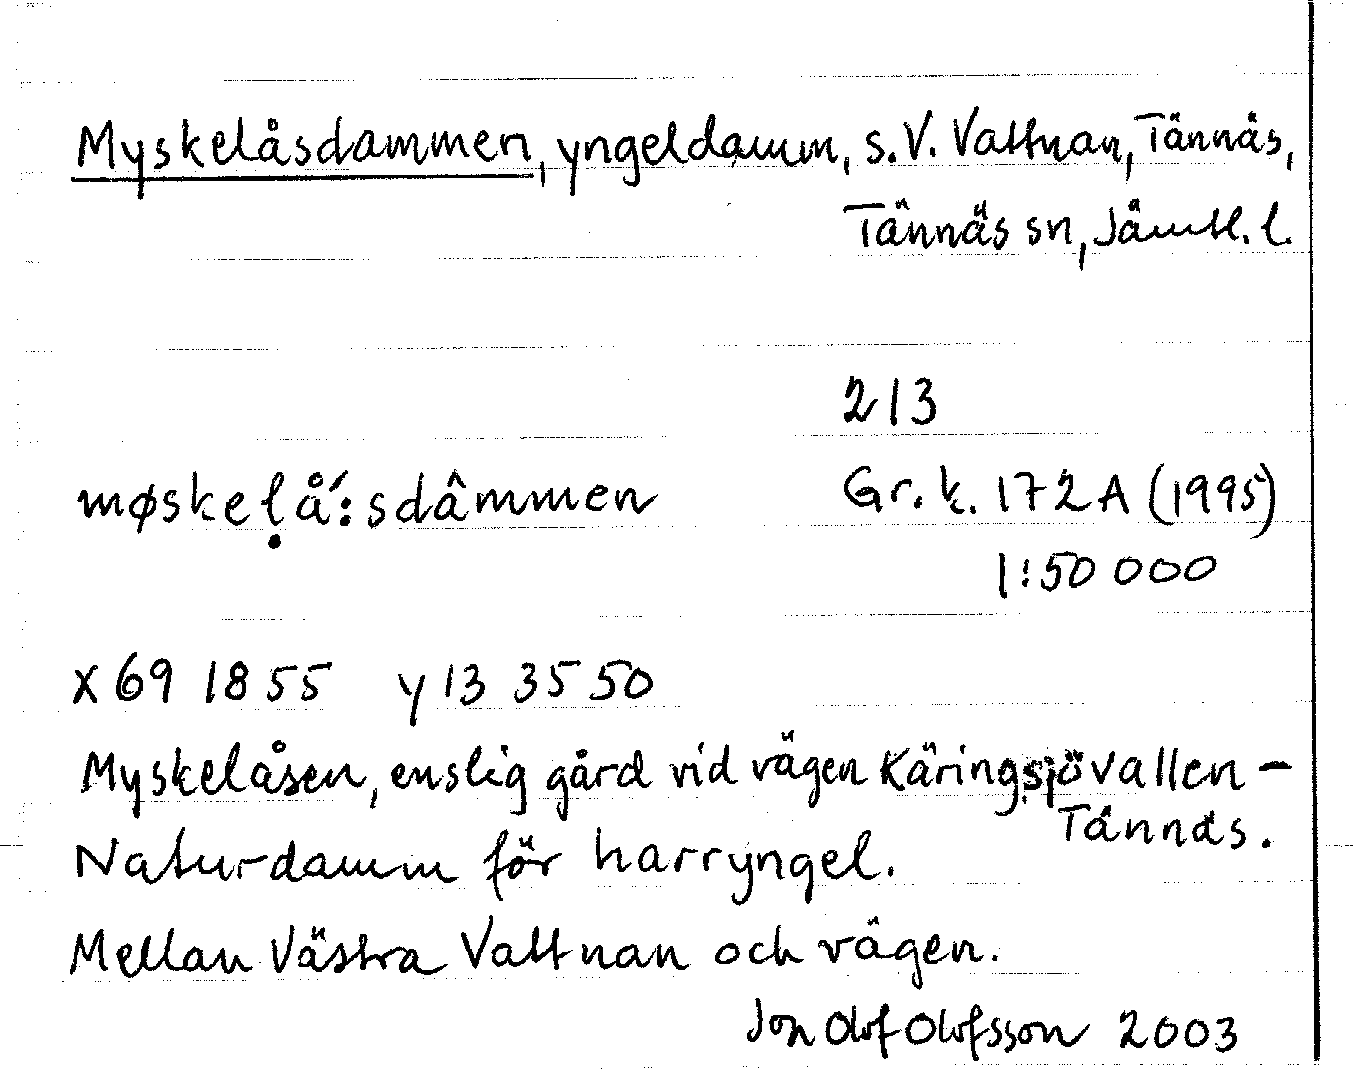 Myskelåsdammen, yngeldamm, s.V. Vattnan, Tännäs,
Tännäs sn, Jämtl. l.
213
møskeḷå´:sdâmmen Gr. k. 172A (1995)
1:50 000
x 69 18 55 y 13 35 50
Myskelåsen, enslig gård vid vägen Käringsjövallen –
Tännäs.
Naturdamm för harryngel.
Mellan Västra Vattnan och vägen.
Jon Olof Olofsson 2003